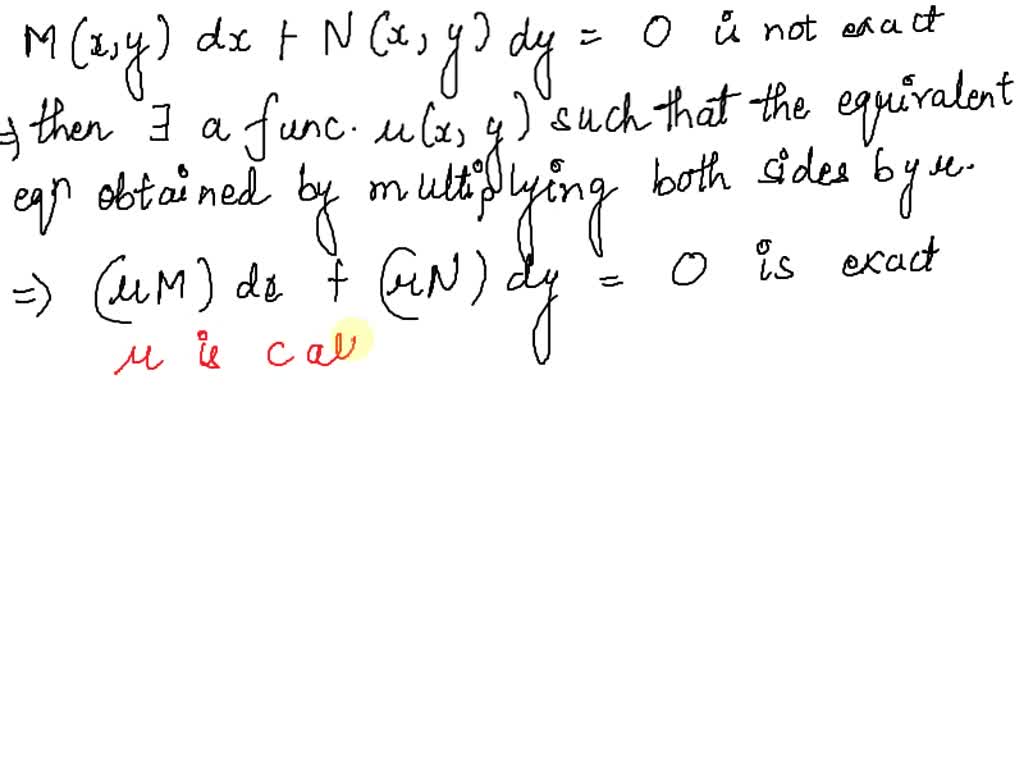 M(x,y) dx + N(x,y) dy = 0 is not exact
⇒ then ∃ a func. u(x,y) such that the equivalent
eqn obtained by multiplying both sides by u.
⇒ (uM) dx + (uN) dy = 0 is exact
u is cal